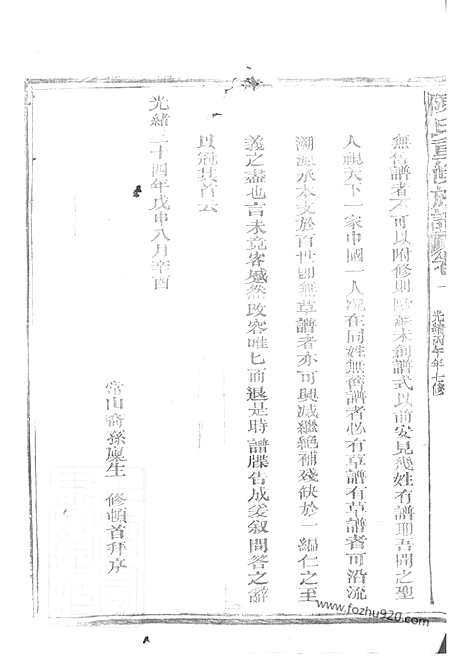 氏重修族譜 卷一 光緒丙午年七修
無舊譜者不可以附修則歐蘇未創譜式以前安見幾姓有譜耶吾聞之聖
人視天下一家中國一人況在同姓無舊譜者必有草譜有草譜者可沿流
溯源承本支於百世即無草譜者亦可興滅繼絕補殘缺於一編仁之至
義之盡也言未竟客蹙然改容唯匕而退是時譜牒告成爰叙問答之辭
以冠其首云
光緒二十四年戊申八月辛酉
常山裔孫廩生 修頓首拜序
www.fozhu920.com